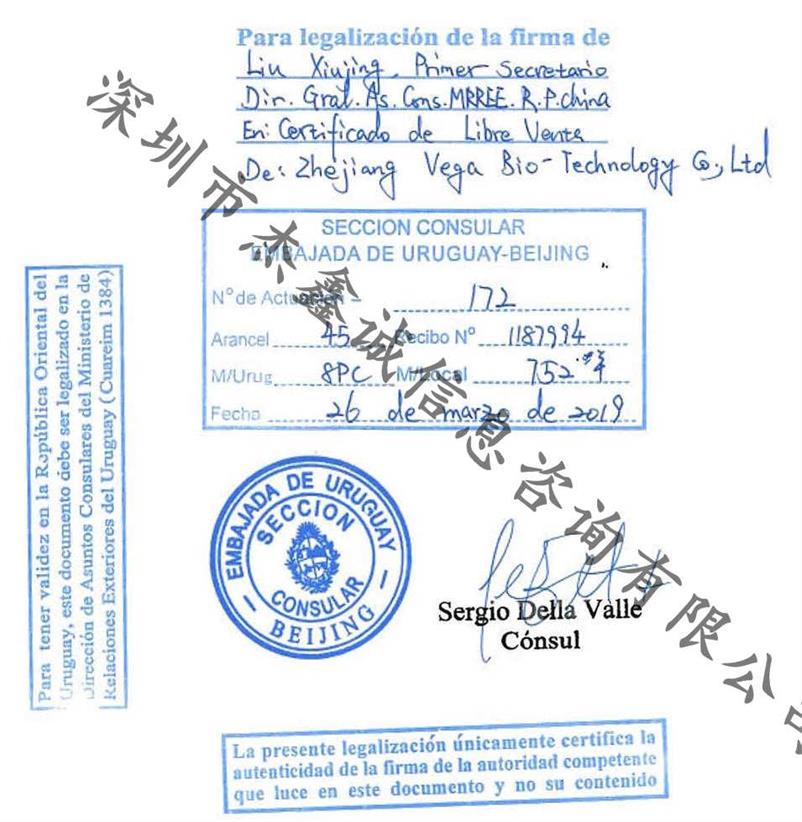 Para legalización de la firma de
Liu Xiujing, Primer Secretario
Dir. Gral. As. Cons. MRREE. R.P. China
En: Certificado de Libre Venta
De: Zhejiang Vega Bio-Technology Co., Ltd
SECCION CONSULAR
EMBAJADA DE URUGUAY-BEIJING
N° de Actuación 172
Arancel 45 Recibo N° 1187994
M/Urug 8PC M/Local 752
Fecha 26 de marzo de 2019
Para tener validez en la República Oriental del
Uruguay, este documento debe ser legalizado en la
Dirección de Asuntos Consulares del Ministerio de
Relaciones Exteriores del Uruguay (Cuareim 1384)
EMBAJADA DE URUGUAY
SECCION
CONSULAR
BEIJING
Sergio Della Valle
Cónsul
La presente legalización únicamente certifica la
autenticidad de la firma de la autoridad competente
que luce en este documento y no su contenido
深圳市杰鑫诚信息咨询有限公司